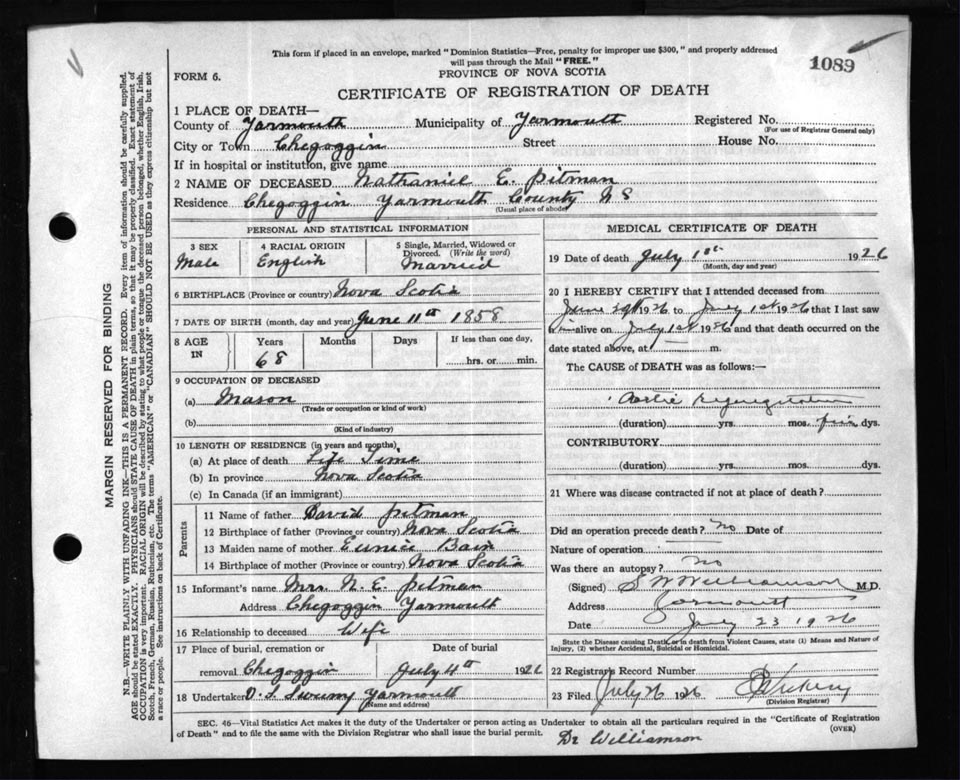 This form if placed in an envelope, marked "Dominion Statistics—Free, penalty for improper use $300," and properly addressed
will pass through the Mail "FREE."
1089
FORM 6.
PROVINCE OF NOVA SCOTIA
CERTIFICATE OF REGISTRATION OF DEATH
1 PLACE OF DEATH—
County of Yarmouth Municipality of Yarmouth Registered No.
(For use of Registrar General only)
City or Town Chegoggin Street House No.
If in hospital or institution, give name
2 NAME OF DECEASED Nathaniel E. Pitman
Residence Chegoggin Yarmouth County N S
(Usual place of abode)
PERSONAL AND STATISTICAL INFORMATION
3 SEX 4 RACIAL ORIGIN 5 Single, Married, Widowed or
Divorced. (Write the word)
Male English Married
6 BIRTHPLACE (Province or country) Nova Scotia
7 DATE OF BIRTH (month, day and year) June 11th 1858
8 AGE Years Months Days If less than one day,
IN 68 hrs. or min.
9 OCCUPATION OF DECEASED
(a) Mason
(Trade or occupation or kind of work)
(b)
(Kind of industry)
10 LENGTH OF RESIDENCE (in years and months)
(a) At place of death Life Time
(b) In province Nova Scotia
(c) In Canada (if an immigrant)
Parents
11 Name of father David Pitman
12 Birthplace of father (Province or country) Nova Scotia
13 Maiden name of mother Eunice Bain
14 Birthplace of mother (Province or country) Nova Scotia
15 Informant's name Mrs. N. E. Pitman
Address Chegoggin Yarmouth
16 Relationship to deceased Wife
17 Place of burial, cremation or Date of burial
removal Chegoggin July 4th 1926
18 Undertaker Yarmouth
(Name and address)
MEDICAL CERTIFICATE OF DEATH
19 Date of death July 1st 1926
(Month, day and year)
20 I HEREBY CERTIFY that I attended deceased from
June 29th 1926 to July 1st 1926 that I last saw
him alive on July 1st 1926 and that death occurred on the
date stated above, at — m.
The CAUSE of DEATH was as follows:—
Aortic Regurgitation
(duration) yrs. mos. dys.
CONTRIBUTORY
(duration) yrs. mos. dys.
21 Where was disease contracted if not at place of death?
Did an operation precede death? no Date of
Nature of operation
Was there an autopsy? No
(Signed) S W Williamson M.D.
Address Yarmouth
Date July 23 1926
State the Disease causing Death, or in death from Violent Causes, state (1) Means and Nature of
Injury, (2) whether Accidental, Suicidal or Homicidal.
22 Registrar's Record Number
23 Filed July 26 1926
(Division Registrar)
SEC. 46—Vital Statistics Act makes it the duty of the Undertaker or person acting as Undertaker to obtain all the particulars required in the "Certificate of Registration
of Death" and to file the same with the Division Registrar who shall issue the burial permit.
(OVER)
Dr Williamson
MARGIN RESERVED FOR BINDING
N.B.—WRITE PLAINLY WITH UNFADING INK—THIS IS A PERMANENT RECORD. Every item of information should be carefully supplied.
AGE should be stated EXACTLY. PHYSICIANS should STATE CAUSE OF DEATH in plain terms, so that it may be properly classified. Exact statement of
OCCUPATION is very important. RACIAL ORIGIN will be described by stating to what people or tongue the deceased person belonged, whether English, Irish,
Scotch, French, German, Russian, Ruthenian, etc. The terms "AMERICAN" or "CANADIAN" SHOULD NOT BE USED as they express citizenship but not
a race or people. See instructions on back of Certificate.